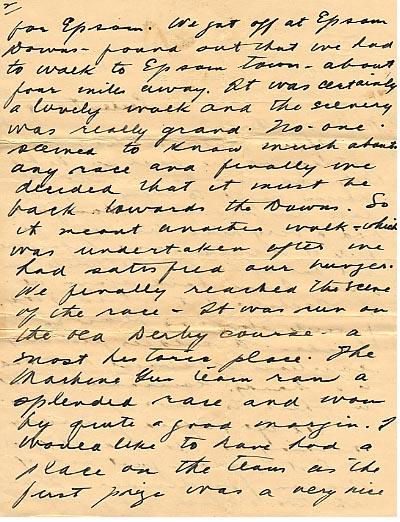 2
for Epsom. We got off at Epsom
Downs - found out that we had
to walk to Epsom town - about
four miles away. It was certainly
a lovely walk and the scenery
was really grand. No-one
seemed to know much about
any race and finally we
decided that it must be
back towards the Downs. So
it meant another walk - which
was undertaken after we
had satisfied our hunger.
We finally reached the scene
of the race - It was run on
the old Derby course - a
most historic place. The
Machine Gun team ran a
splended race and won
by quite a good margin. I
would like to have had a
place on the team as the
first prize was a very nice